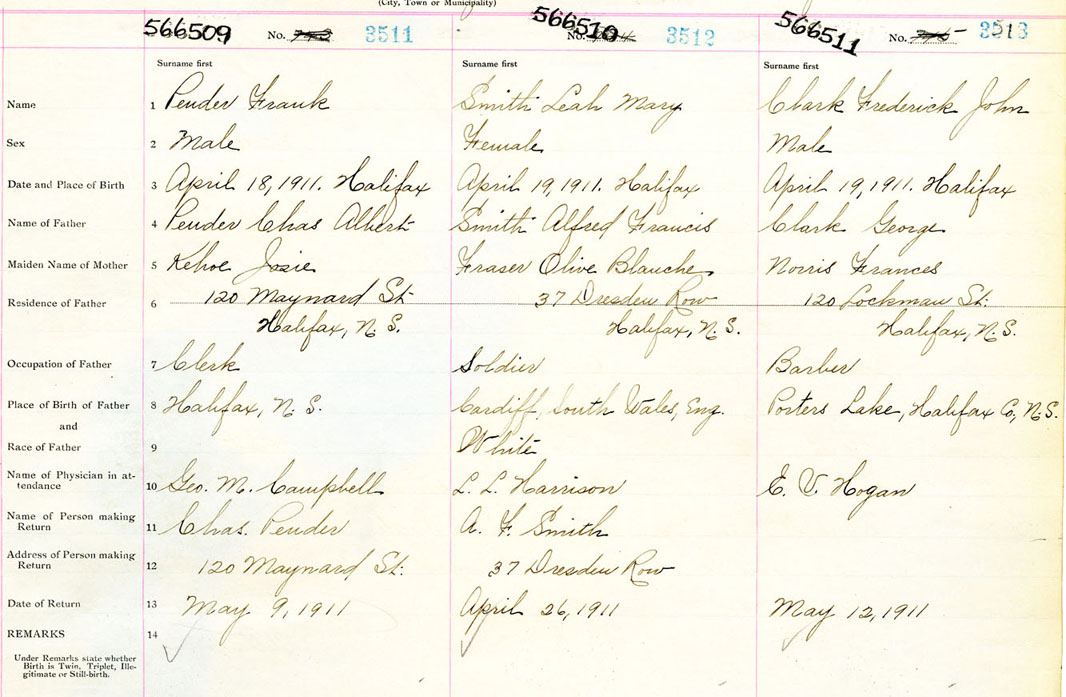 (City, Town or Municipality)
566509 No. 3511 566510 No. 3512 566511 No. 3513
Surname first Surname first Surname first
Name 1 Pender Frank Smith Leah Mary Clark Frederick John
Sex 2 Male Female Male
Date and Place of Birth 3 April 18, 1911. Halifax April 19, 1911. Halifax April 19, 1911. Halifax
Name of Father 4 Pender Chas Albert Smith Alfred Francis Clark George
Maiden Name of Mother 5 Kehoe Josie Fraser Olive Blanche Norris Frances
Residence of Father 6 120 Maynard St. 37 Dresden Row 120 Lockman St.
Halifax, N.S. Halifax, N.S. Halifax, N.S.
Occupation of Father 7 Clerk Soldier Barber
Place of Birth of Father 8 Halifax, N.S. Cardiff, South Wales, Eng. Porters Lake, Halifax Co, N.S.
and
Race of Father 9 White
Name of Physician in at-
tendance 10 Geo. M. Campbell L. L. Harrison E. V. Hogan
Name of Person making
Return 11 Chas. Pender A. F. Smith
Address of Person making
Return 12 120 Maynard St. 37 Dresden Row
Date of Return 13 May 9, 1911 April 26, 1911 May 12, 1911
REMARKS 14
Under Remarks state whether
Birth is Twin, Triplet, Ille-
gitimate or Still-birth.